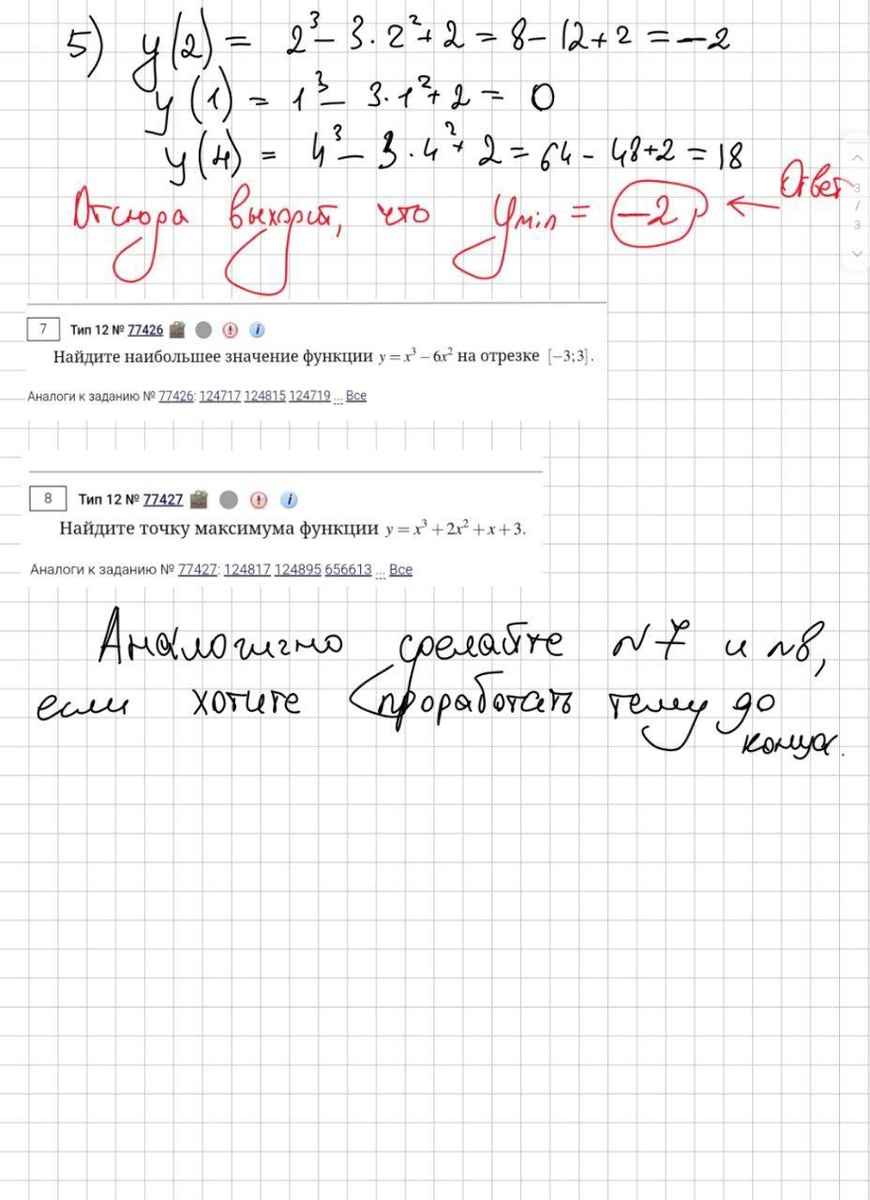 5) y(2) = 2³ - 3·2² + 2 = 8 - 12 + 2 = -2
y(1) = 1³ - 3·1² + 2 = 0
y(4) = 4³ - 3·4² + 2 = 64 - 48 + 2 = 18
Отсюда выходит, что yмin = -2 ← Ответ
3
/
3
7 Тип 12 № 77426 i
Найдите наибольшее значение функции y = x³ – 6x² на отрезке [−3;3].
Аналоги к заданию № 77426: 124717 124815 124719 ... Все
8 Тип 12 № 77427 i
Найдите точку максимума функции y = x³ + 2x² + x + 3.
Аналоги к заданию № 77427: 124817 124895 656613 ... Все
Аналогично сделайте №7 и №8,
если хотите проработать тему до
конца.